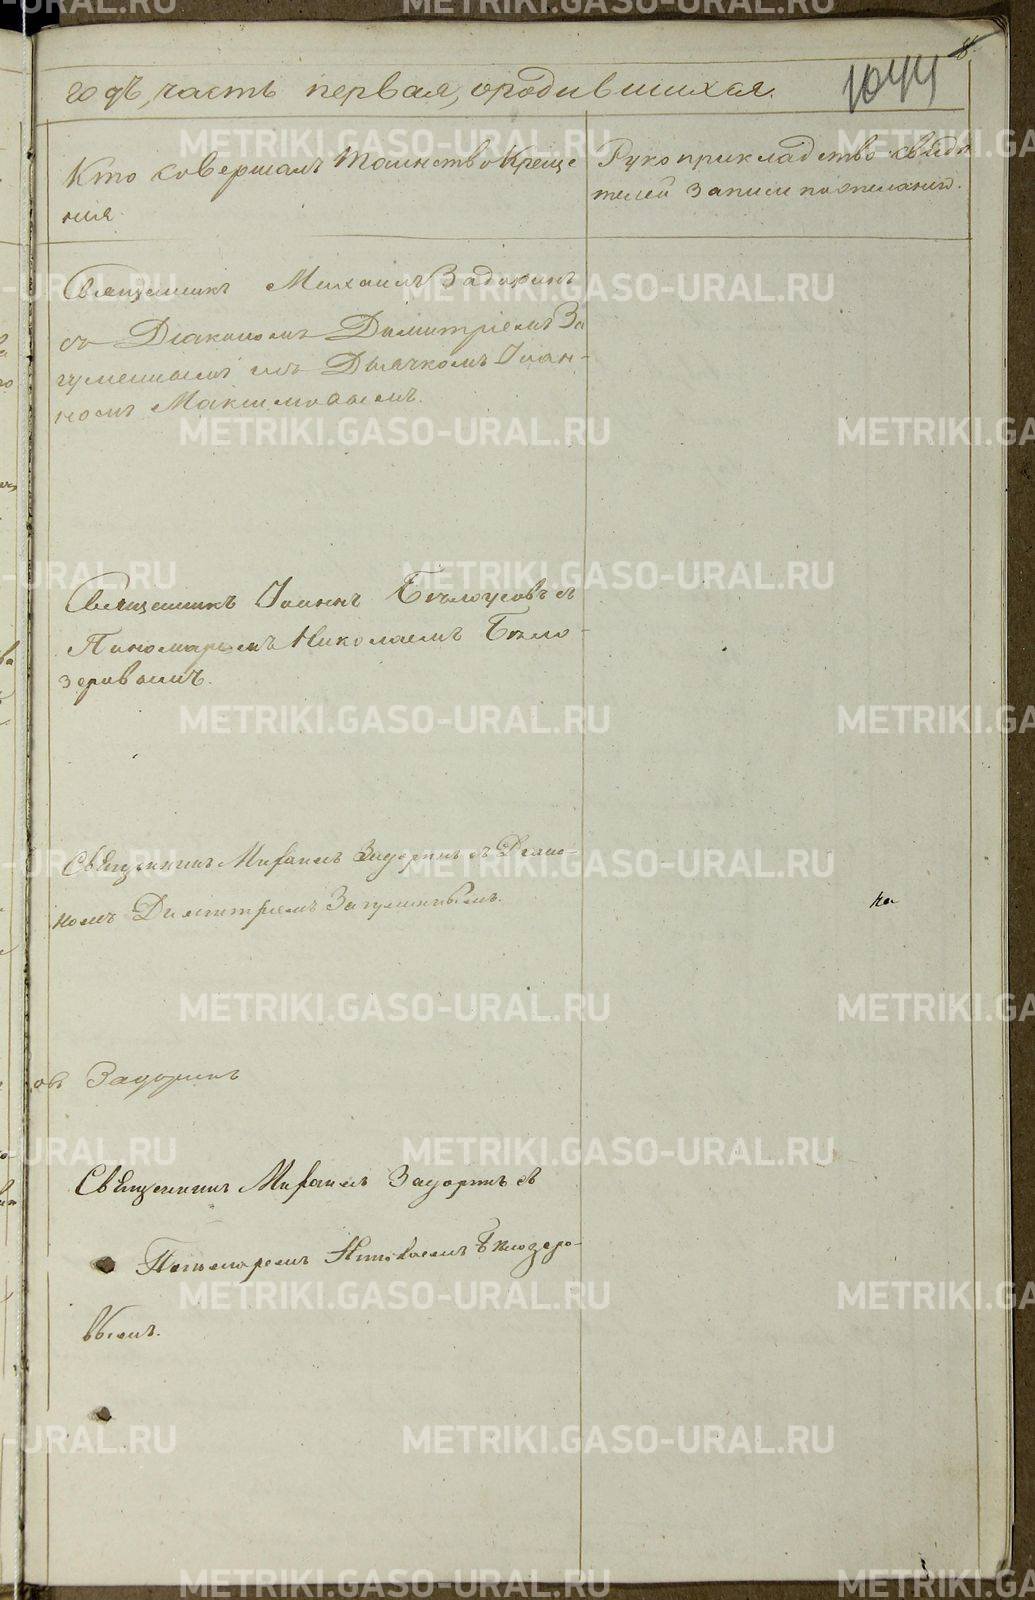 8
1044
годъ, часть первая, ородившихся.
Кто совершалъ таинство Креще
нія.
Рукоприкладство свидѣ
телей записи по желанію.
Священникъ Михаилъ Задоринъ
съ Діакономъ Димитріемъ За
гуменнымъ и съ Дьячкомъ Іоан-
номъ Максимовымъ.
Священникъ Іоаннъ Бѣлоусовъ съ
Пономаремъ Николаемъ Бѣло-
зеровымъ.
Священникъ Михаилъ Задоринъ съ Діако-
номъ Димитріемъ Загуменнымъ.
на
Задоринъ
Священникъ Михаилъ Задоринъ съ
Пономаремъ Николаемъ Бѣлозеро-
вымъ.
METRIKI.GASO-URAL.RU